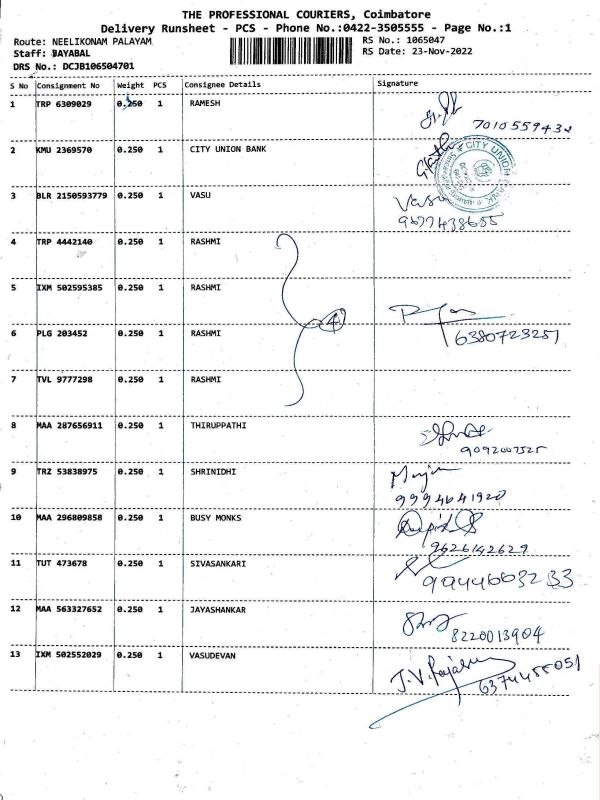 THE PROFESSIONAL COURIERS, Coimbatore
Delivery Runsheet - PCS - Phone No.:0422-3505555 - Page No.:1
Route: NEELIKONAM PALAYAM RS No.: 1065047
Staff: BAYABAL RS Date: 23-Nov-2022
DRS No.: DCJB106504701
S No Consignment No Weight PCS Consignee Details Signature
1 TRP 6309029 0.250 1 RAMESH
7010559432
2 KMU 2369570 0.250 1 CITY UNION BANK
CITY UNION
3 BLR 2150593779 0.250 1 VASU Vasu
9677438655
4 TRP 4442140 0.250 1 RASHMI
5 IXM 502595385 0.250 1 RASHMI
4
6 PLG 203452 0.250 1 RASHMI 6380723251
7 TVL 9777298 0.250 1 RASHMI
8 MAA 287656911 0.250 1 THIRUPPATHI
9092007525
9 TRZ 53838975 0.250 1 SHRINIDHI
9994641920
10 MAA 296809858 0.250 1 BUSY MONKS
9626142629
11 TUT 473678 0.250 1 SIVASANKARI
9944603233
12 MAA 563327652 0.250 1 JAYASHANKAR
8220013904
13 IXM 502552029 0.250 1 VASUDEVAN
6374455051